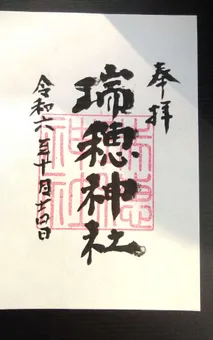 奉拝
瑞穂神社
令和六年十月十四日